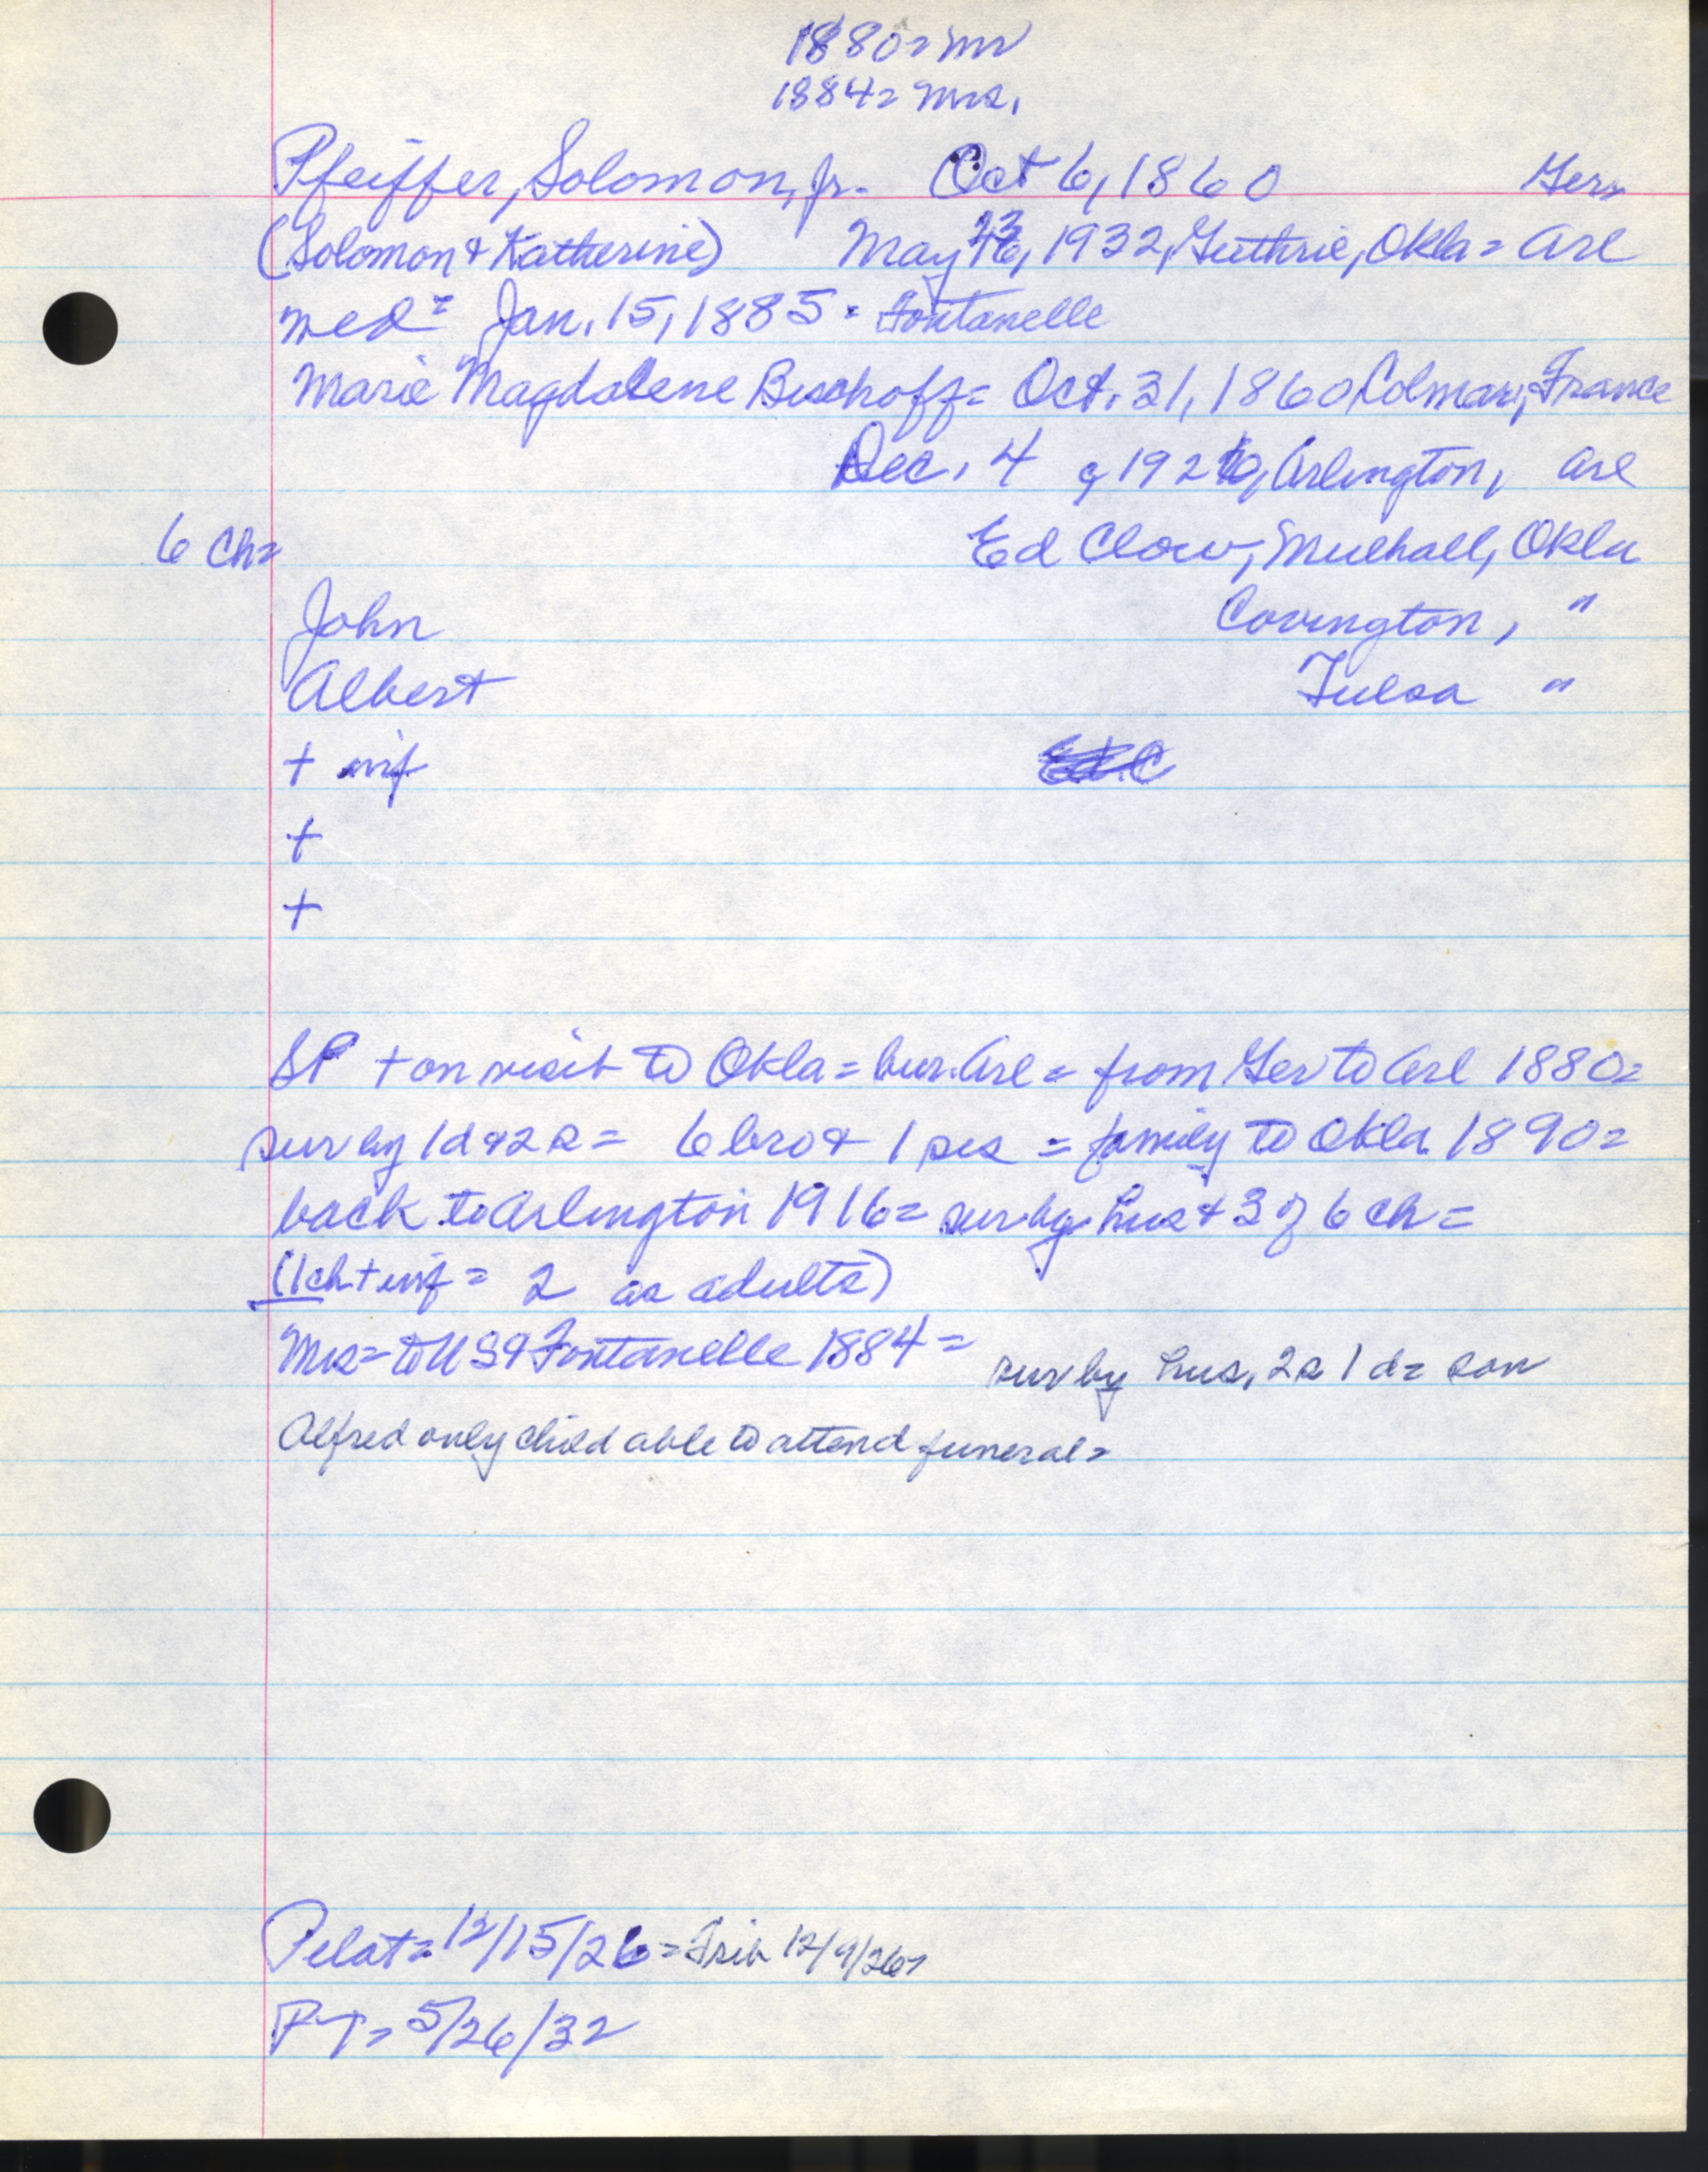 1880= Mr
1884= Mrs.
Pfeiffer, Solomon, Jr. Oct 6, 1860 Ger
(Solomon & Katherine) May 23, 1932, Guthrie, Okla = Arl
med = Jan. 15, 1885 = Fontanelle
Marie Magdalene Bischoff = Oct. 31, 1860 Colmar, France
Dec. 4, 1926, Arlington, Arl
6 Ch= Ed Clow, Mulhall, Okla
John Covington, "
Albert Tulsa "
+ inf
+
+
SP + on visit to Okla = bur. Arl = from Ger to Arl 1880=
sur by 1d & 2s = 6 bro & 1 sis = family to Okla 1890=
back to Arlington 1916= sur by hus & 3 of 6 ch =
(1ch + inf = 2 as adults)
Mrs= to US & Fontanelle 1884 = sur by hus, 2s 1 d= son
Alfred only child able to attend funeral=
Pilot= 12/15/26 = Trib 12/9/26=
PT= 5/26/32